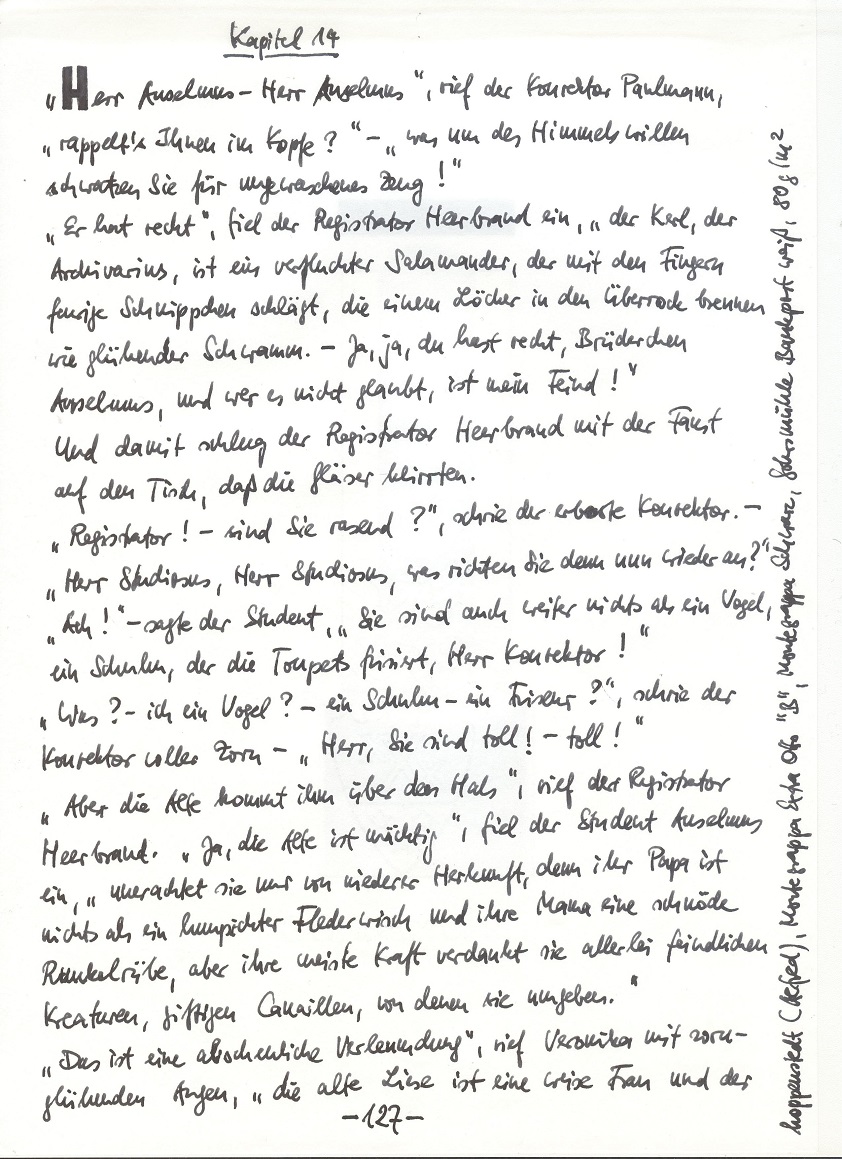 Kapitel 14
„Herr Anselmus – Herr Anselmus“, rief der Konrektor Paulmann,
„rappelt's Ihnen im Kopfe?“ – „was um des Himmels willen
schwatzen Sie für ungewaschenes Zeug!“
„Er hat recht“, fiel der Registrator Heerbrand ein, „der Kerl, der
Archivarius, ist ein verfluchter Salamander, der mit den Fingern
feurige Schnippchen schlägt, die einem Löcher in den Überrock brennen
wie glühender Schwamm. – Ja, ja, du hast recht, Brüderchen
Anselmus, und wer es nicht glaubt, ist mein Feind!“
Und damit schlug der Registrator Heerbrand mit der Faust
auf den Tisch, daß die Gläser klirrten.
„Registrator! – sind Sie rasend?“, schrie der erboste Konrektor. –
„Herr Studiosus, Herr Studiosus, was richten Sie denn nun wieder an?“
„Ach!“ – sagte der Student, „Sie sind auch weiter nichts als ein Vogel,
ein Schuhu, der die Toupets frisiert, Herr Konrektor!“
„Was? – ich ein Vogel? – ein Schuhu – ein Friseur?“, schrie der
Konrektor voller Zorn – „Herr, Sie sind toll! – toll!“
„Aber die Alte kommt ihm über den Hals“, rief der Registrator
Heerbrand. „Ja, die Alte ist mächtig“, fiel der Student Anselmus
ein, „unerachtet sie nur von niederer Herkunft, denn ihr Papa ist
nichts als ein lumpichter Flederwisch und ihre Mama eine schnöde
Runkelrübe, aber ihre meiste Kraft verdankt sie allerlei feindlichen
Kreaturen, giftigen Canaillen, von denen sie umgeben.“
„Das ist eine abscheuliche Verleumdung“, rief Veronika mit zorn-
glühenden Augen, „die alte Liese ist eine weise Frau und der
– 127 –
hoppenstedt (Alfred), Montegrappa Extra Otto "B", Montegrappa Schwarz, Gohrsmühle Bankpost weiß, 80 g/m²